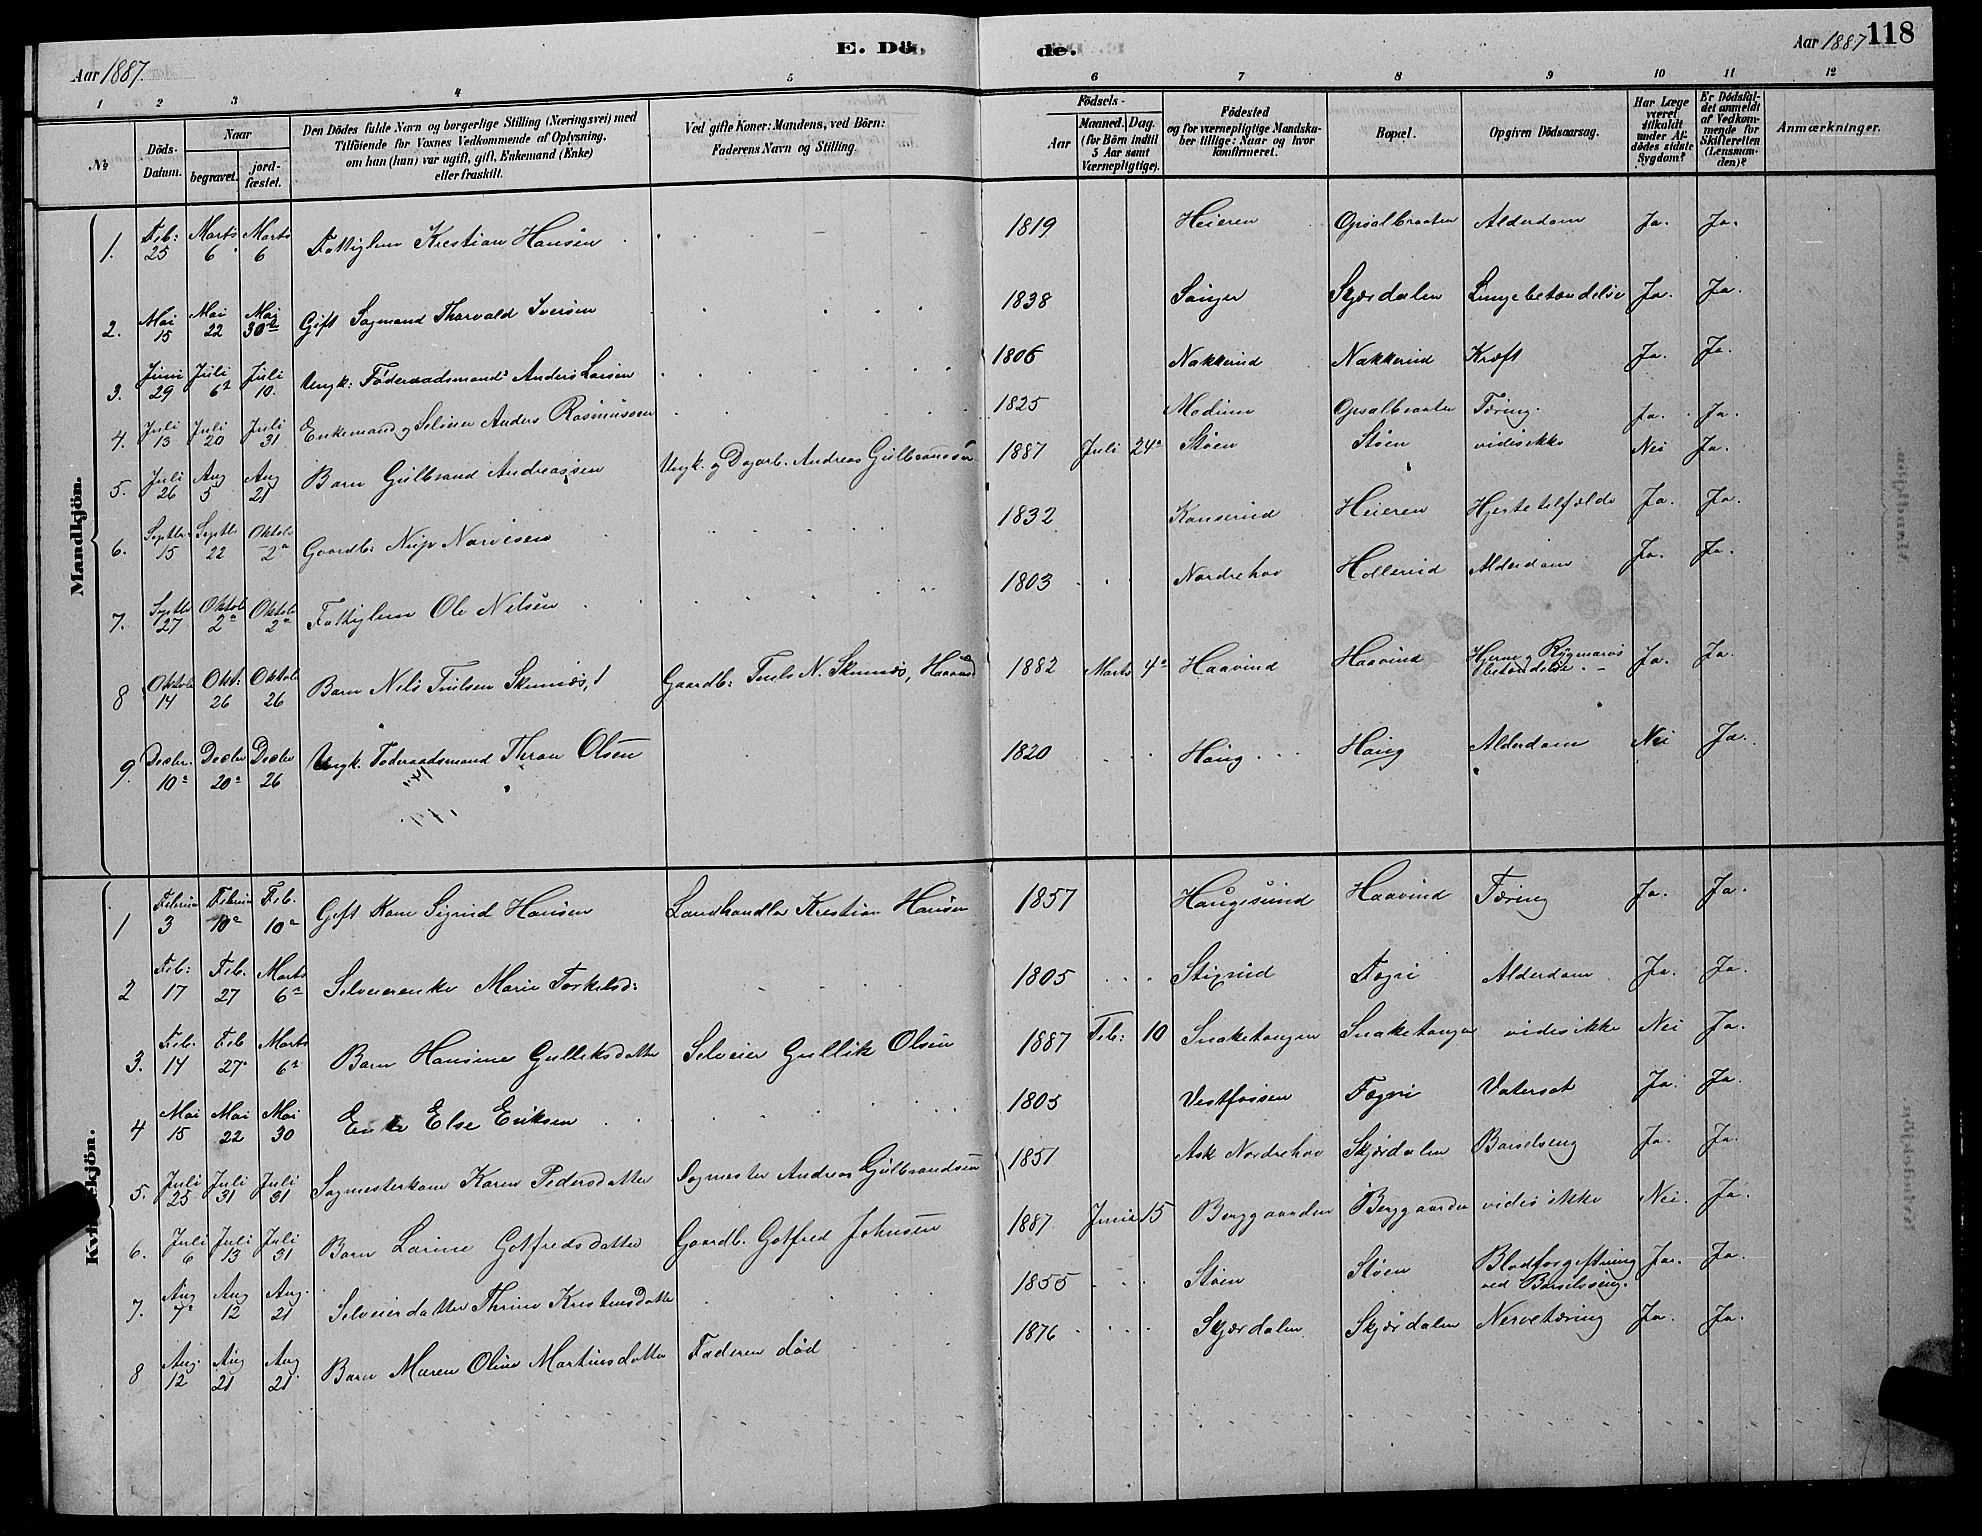 Aar 1887. E. Döde. Aar 1887 118
1 2 3 4 5 6 7 8 9 10 11 12
№
Döds-Datum.
Naar
begravet.
jordfæstet.
Den Dödes fulde Navn og borgerlige Stilling (Næringsvei) med
Tilföiende for Voxnes Vedkommende af Oplysning,
om han (hun) var ugift, gift, Enkemand (Enke)
eller fraskilt.
Ved gifte Koner: Mandens, ved Börn:
Faderens Navn og Stilling.
Födsels-
Aar
Maaned. Dag.
(for Börn indtil
5 Aar samt
Værnepligtige).
Födested
og for værnepligtige Mandskaber tillige: Naar og hvor
konfirmeret.
Bopæl.
Opgiven Dödsaarsag.
Har Læge
været
tilkaldt
under Afdödes sidste
Sygdom?
Er Dödsfaldet anmeldt
af Vedkommende for
Skifteretten
(Lensmanden)?
Anmærkninger.
Mandkjön.
1. Feb: 25 Marts 6 Marts 6 Fattiglem Kristian Hansen 1819 Heieren Opsalbraaten Alderdom Ja. Ja.
2. Mai 15 Mai 22 Mai 30 Gift Sagmand Thorvald Iversen 1838 Skjærdalen Lungebetændelse Ja. Ja.
3. Juni 29 Juli 6 Juli 10. Ungk: Föderaadsmand Anders Larsen 1806 Nakkerud Nakkerud Kræft Ja. Ja.
4. Juli 13 Juli 20 Juli 31 Enkemand og Selveier Anders Rasmussen 1825 Modum Opsalbraaten Tæring. Ja. Ja.
5. Juli 26 Aug 5 Aug 21 Barn Gulbrand Andreassen Ungk. og Dagarb. Andreas Gulbrandsen 1887 Juli 24 Støen Støen vides ikke Nei Ja.
6. Septbr 15 Septbr 22 Oktob 2 Gaardb: Narvesen 1832 Heieren Hjertetilfælde Ja. Ja.
7. Septbr 27 Oktob 2 Oktob 2 Fattiglem Ole Nilsen 1803 Nordrehov Hollerud Alderdom Ja. Ja.
8 Oktob 14 Okt: 26 Oktob 26 Barn Nils Truls N. Gaardb: Truls N. 1882 Marts 4 Haavind Haavind Hjerne og Rygmarvs betændelse Ja. Ja.
9. Decbr. 10 Decbr 20 Decbr 26 Ungk. Föderaadsmand Thron Olsen 1820 Haug Haug Alderdom Nei Ja.
Kvindekjön.
1 Februar 3 Februar 10 Feb. 10 Gift Kone Sigrid Hansen Landhandler Kristian Hansen 1857 Haugesund Haavind Tæring Ja. Ja.
2 Feb: 17 Feb. 27 Marts 6 Selveierenke Marie Torkelsd: 1805 Tegri Alderdom Ja. Ja.
3. Feb. 14 Feb 27 Marts 6 Barn Hansine Gulliksdatter Selveier Gullik Olsen 1887 Feb: 10 Snaketangen Snaketangen vides ikke Nei Ja.
4 Mai 15 Mai 22 Mai 30 Enke Else Eriksen 1805 Vestfossen Tegri Vatersot Ja. Ja.
5. Juli 25 Juli 31 Juli 31 Sagmesterkone Karen Pedersdatter Sagmester Andreas Gulbrandsen 1851 Ask Nordrehov Skjærdalen Barselseng Ja. Ja.
6. Juli 6 Juli 13 Juli 31 Barn Larine Gotfredsdatter Gaardb. Gotfred Johnsen 1887 Juni 15 Berggaarden Berggaarden vides ikke Nei. Ja.
7. Aug 7 Aug 12 Aug. 21 Selveierdatter Thrine Kristensdatter 1855 Støen Støen Blodforgiftning ved Barselseng. Ja. Ja.
8 Aug. 12 Aug 21 Aug 21 Barn Maren Oline Martinsdatter Faderen død 1876 Skjærdalen Skjærdalen Nervetæring Ja. Ja.